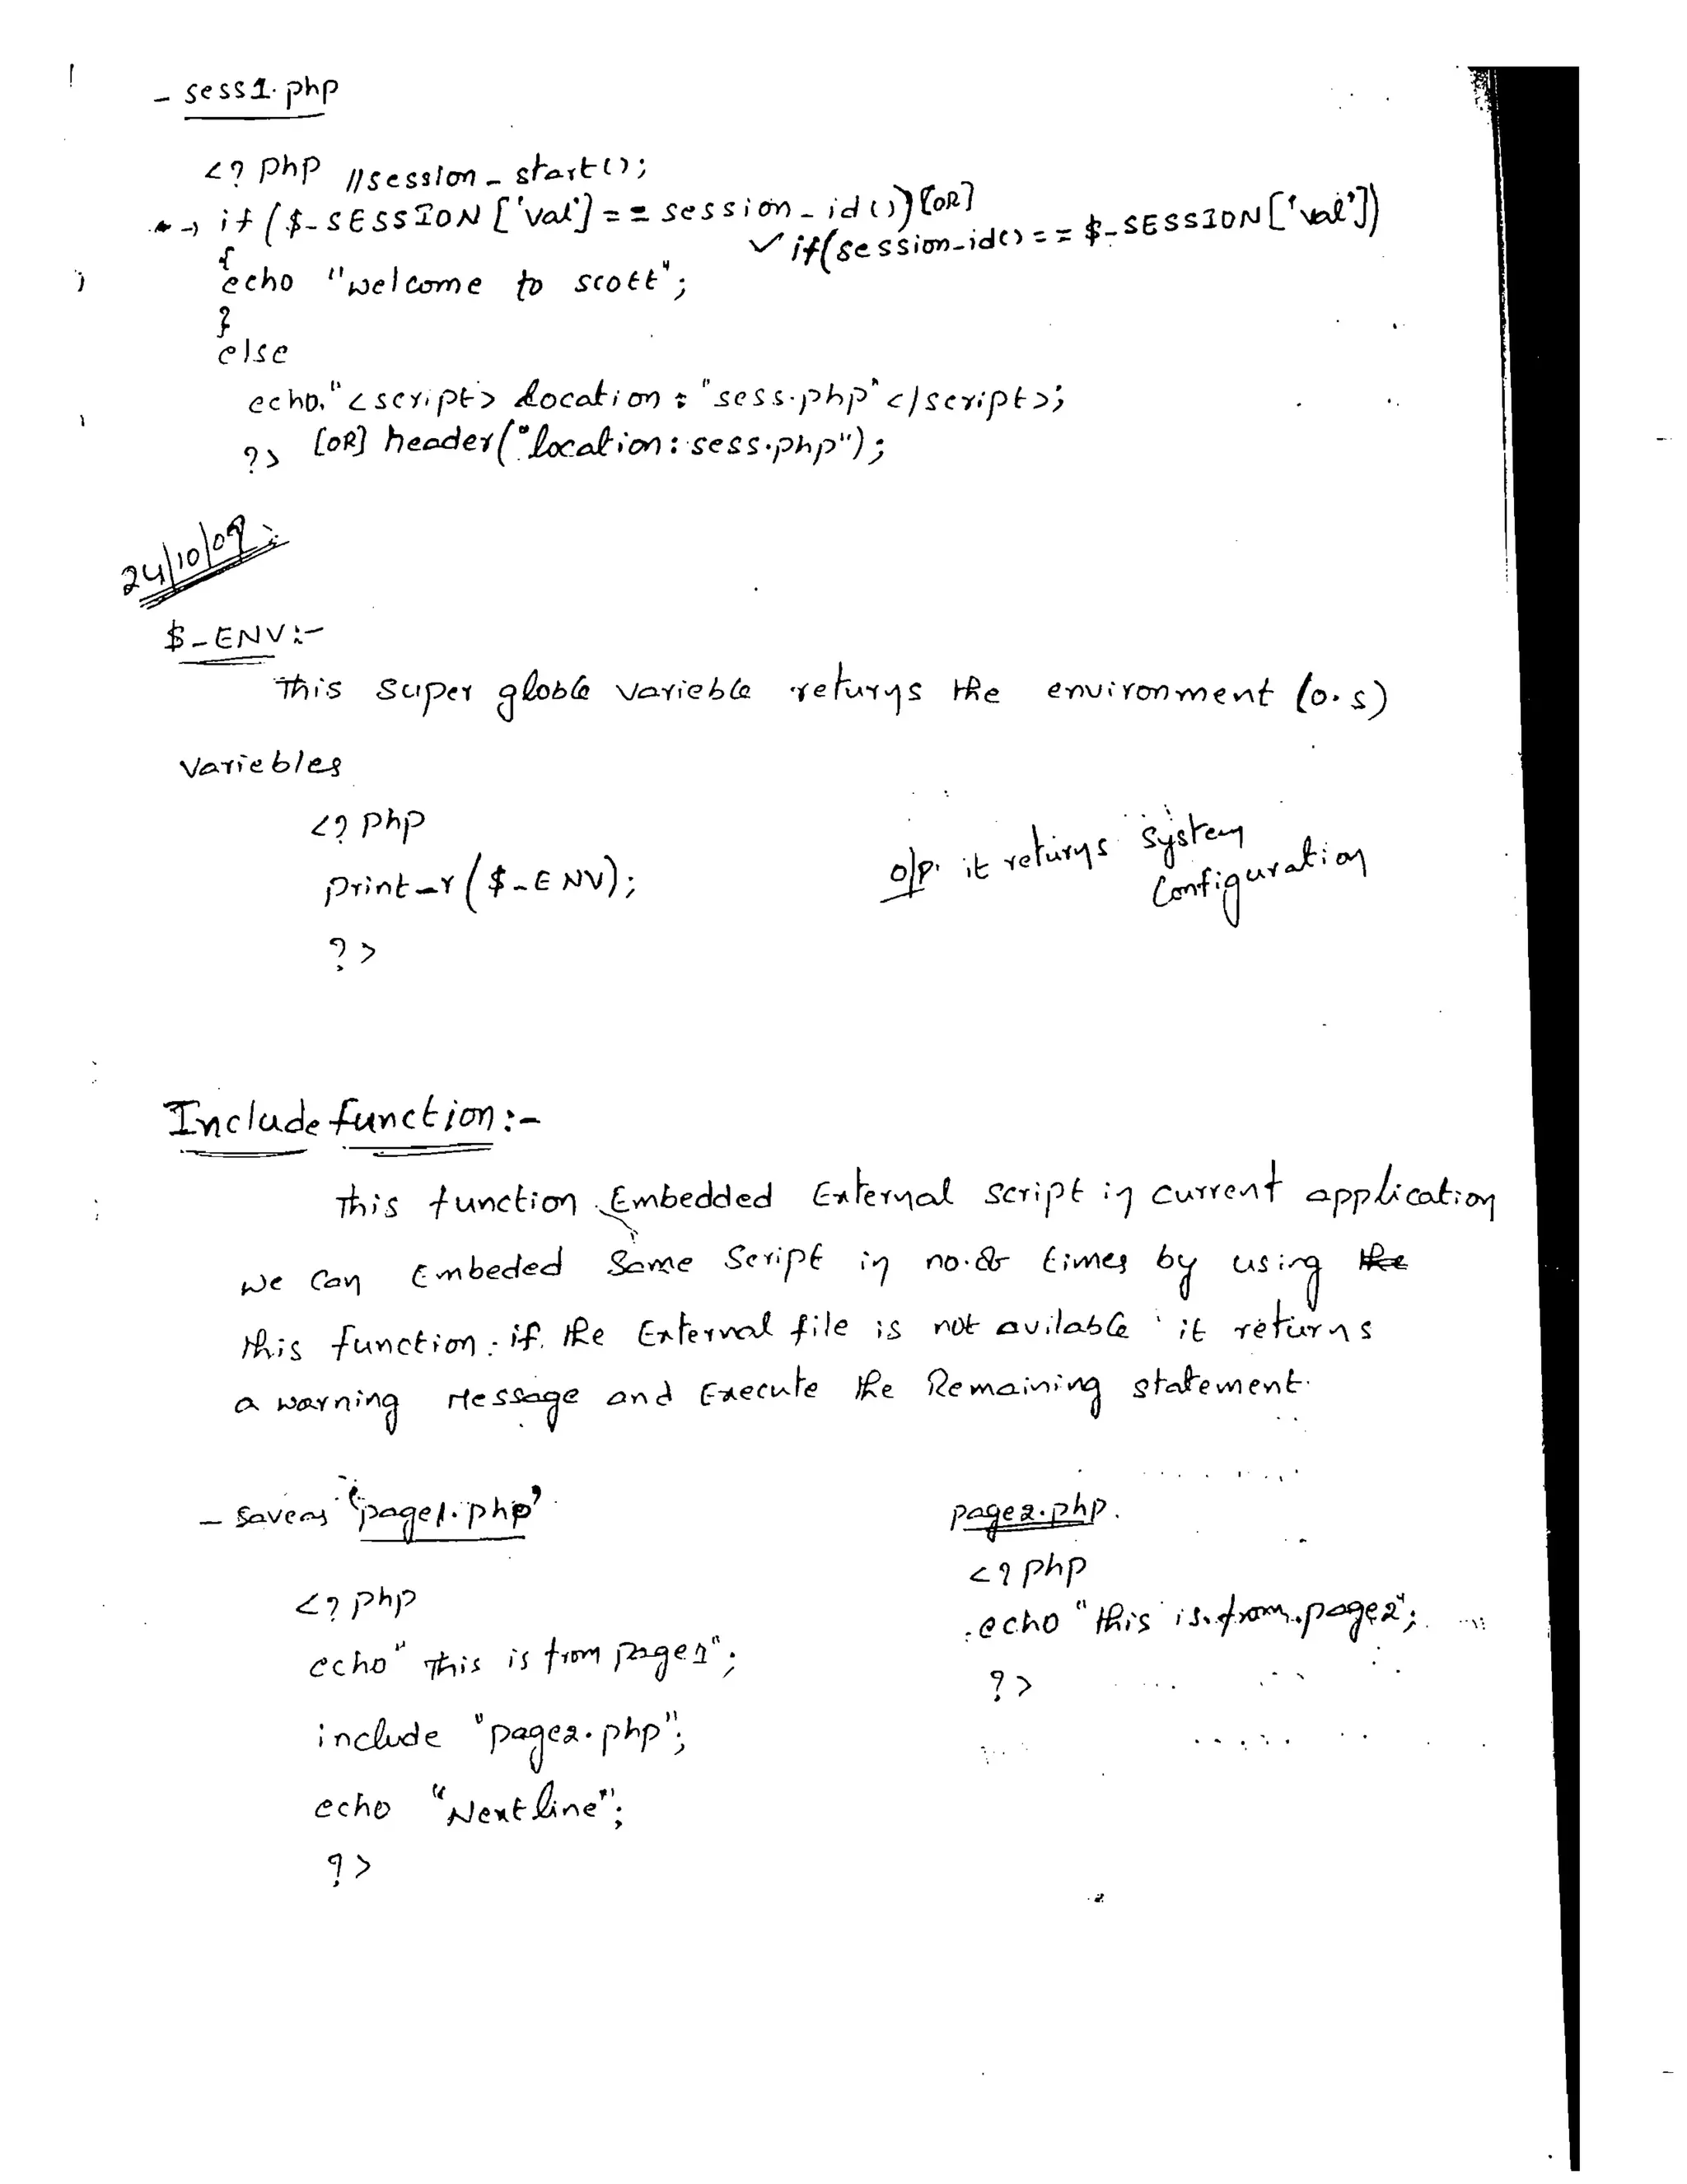 - sess1.php
<? php //session_start();
→ if ($_SESSION ['val'] == session_id()) [OR]
✓ if(session_id() == $_SESSION['val'])
{
echo "welcome to scott";
}
else
echo "<script> location = "sess.php" </script>;
?> [OR] header("location: sess.php");
24/10/09
$_ENV:-
This super globle varieble returns the environment (o.s)
variebles
<? php
print_r ($_ENV);
?>
o/p. it returns system
configuration
Include function:-
This function Embedded External script in current application
we can Embeded Same Script in no.of times by using the
this function. if the External file is not avilable it returns
a warning Message and Execute the Remaining statement.
- saveas 'page1.php'
<? php
echo" This is from page1";
include "page2.php";
echo "Next line";
?>
page2.php.
<? php
echo "this is from page2";
?>